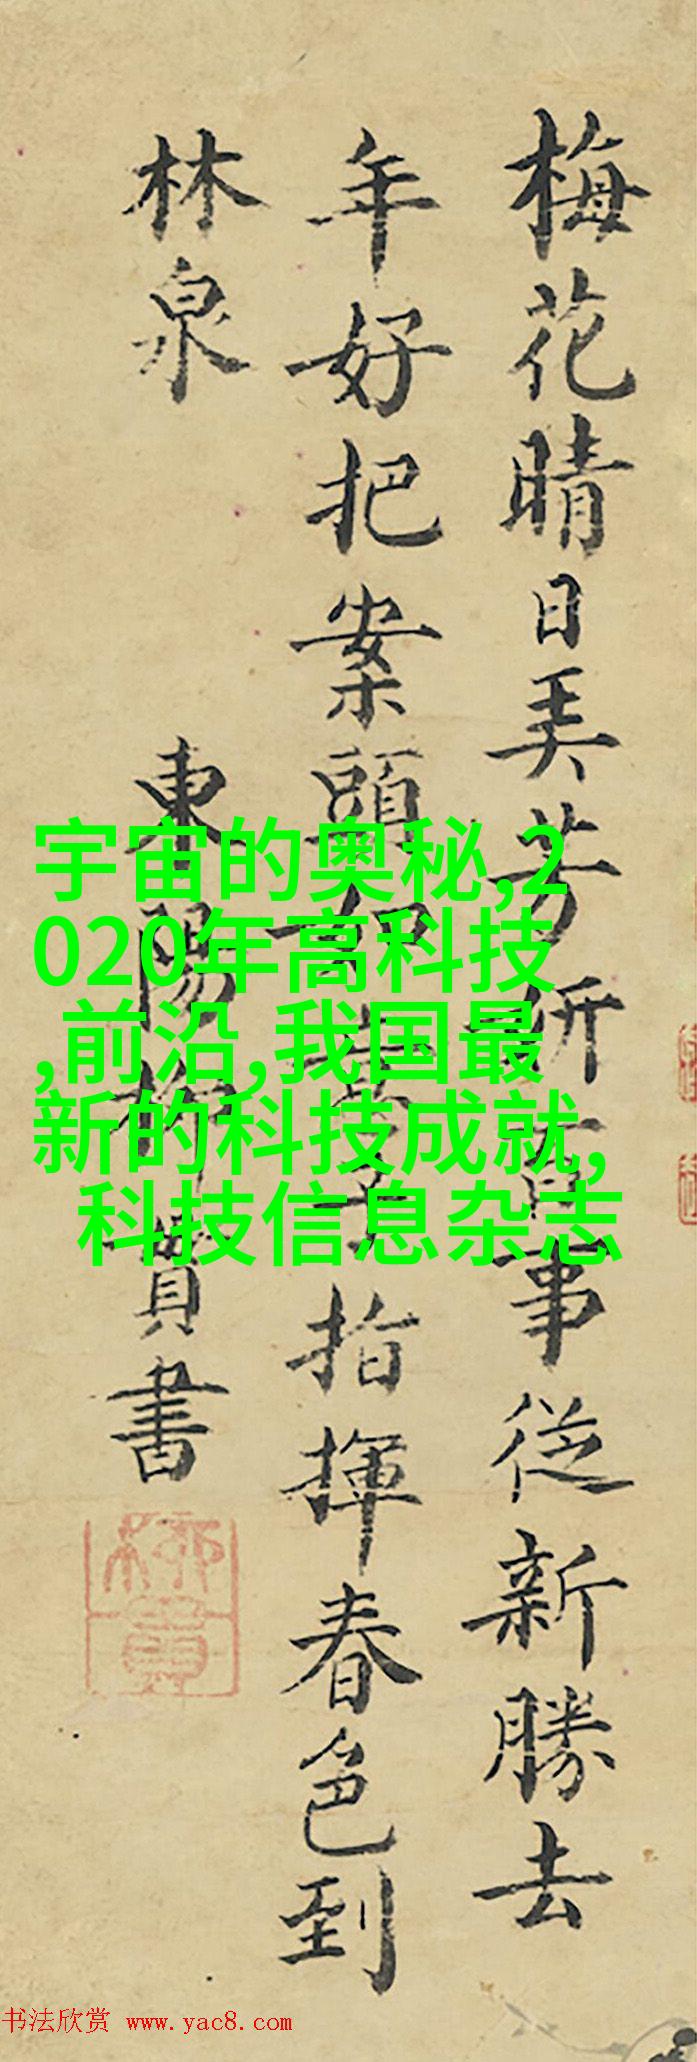 梅花晴日美芳妍百事從新勝去
年好把案頭如意子指揮春色到
林泉
東陽柳貫書
柳貫
宇宙的奥秘,2
020年高科技
,前沿,我国最
新的科技成就,
科技信息杂志
书法欣赏 www.yac8.com